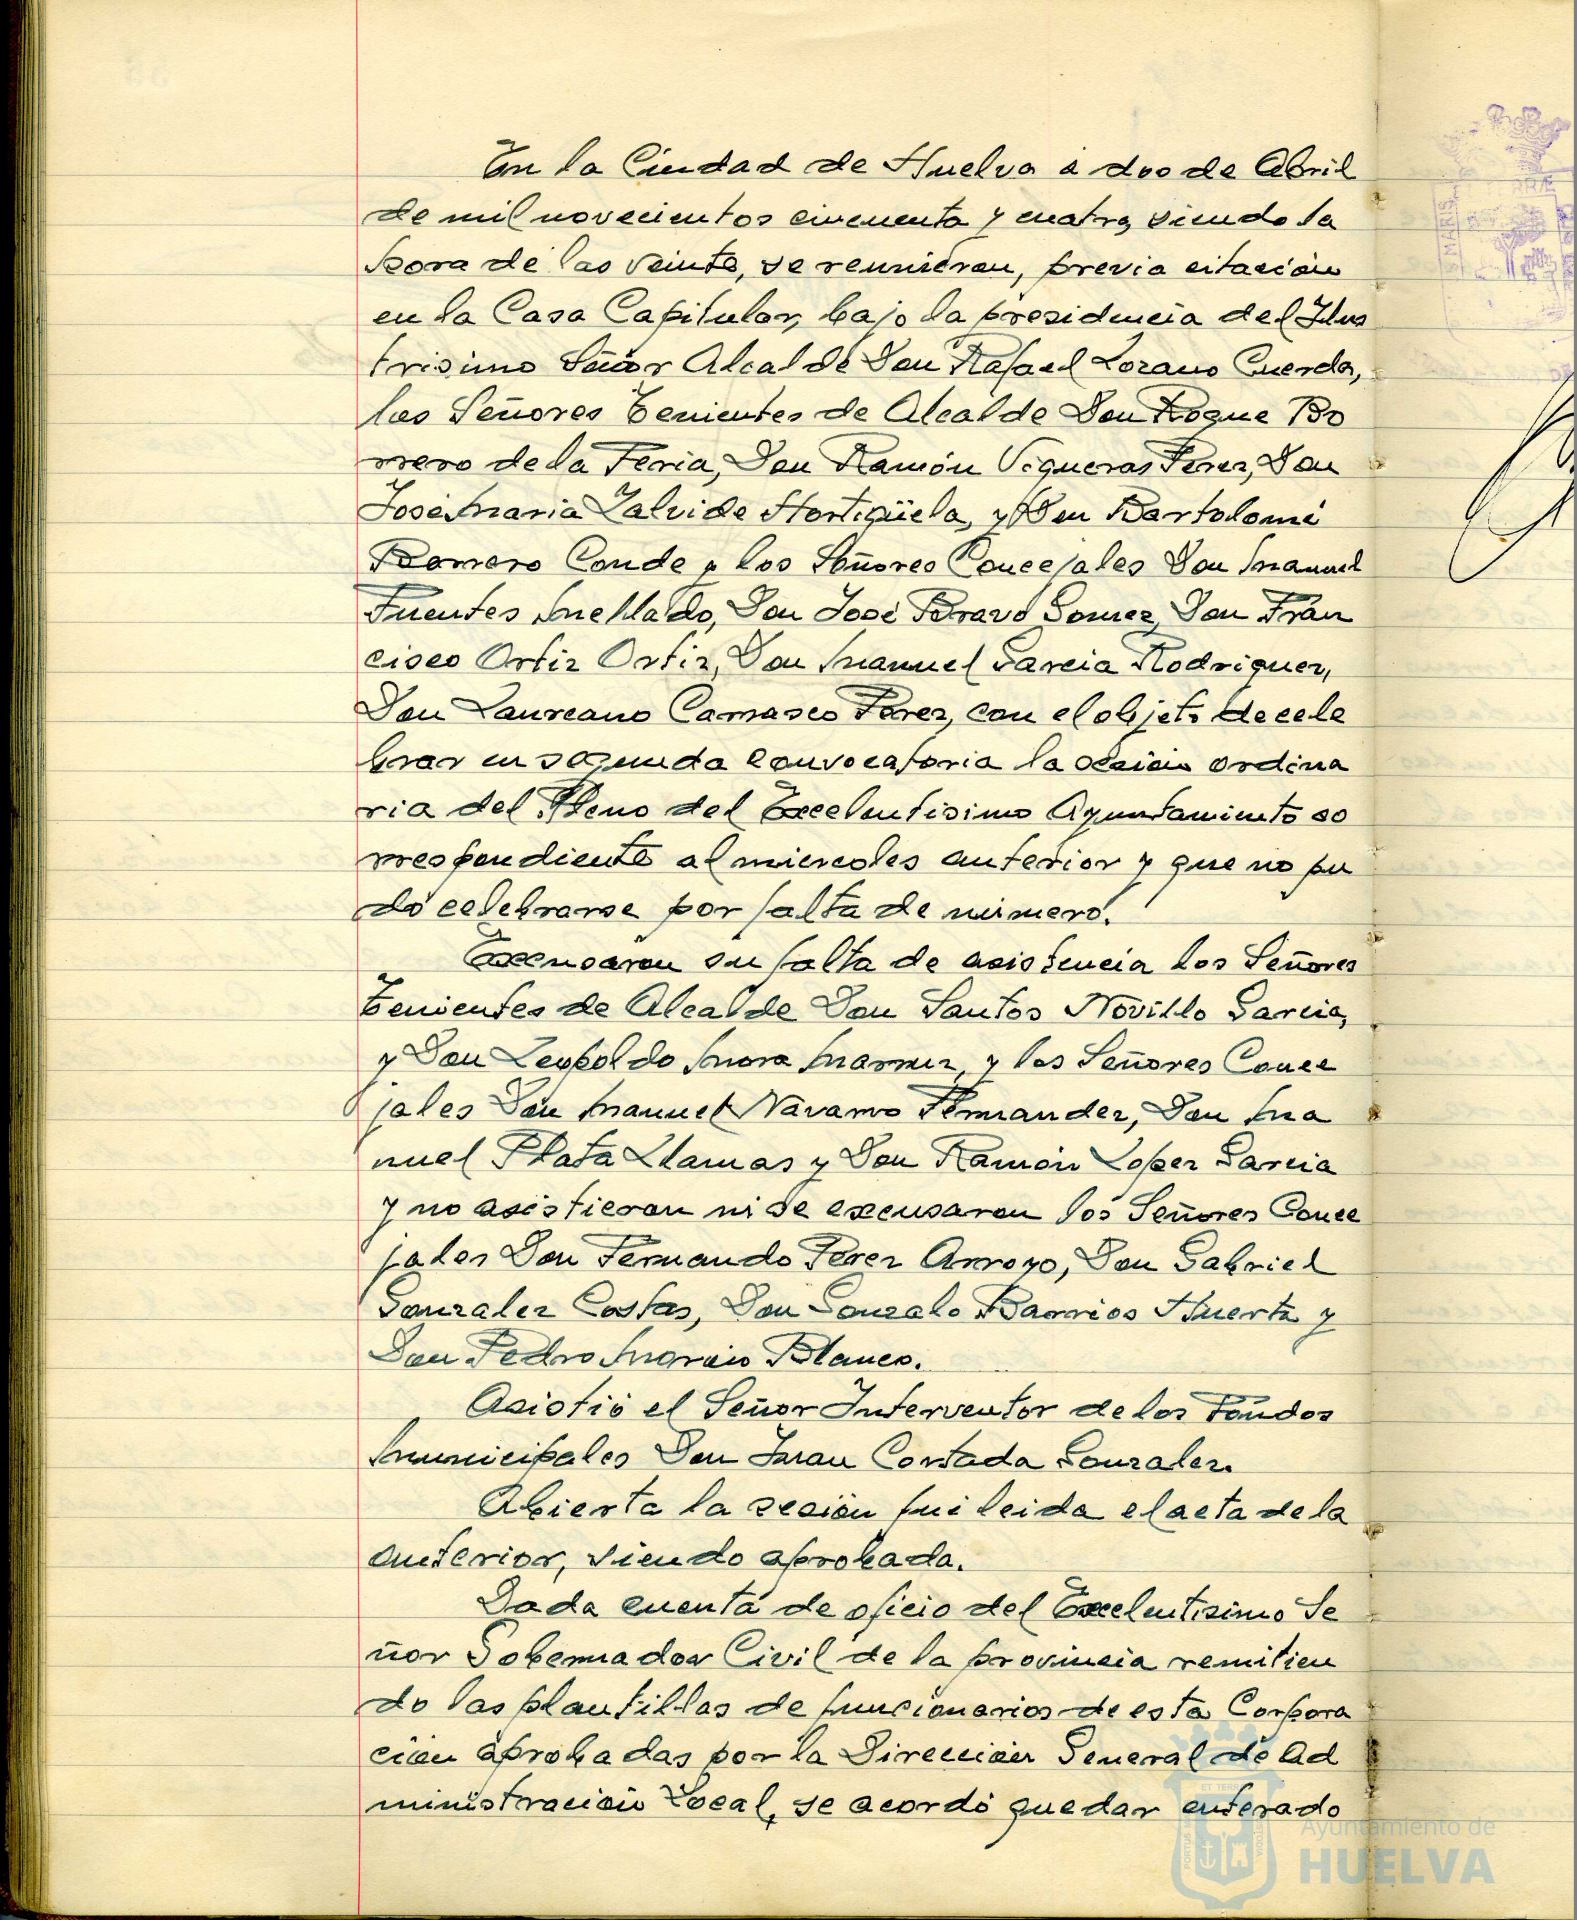 En la Ciudad de Huelva a dos de Abril
de mil novecientos cincuenta y cuatro, siendo la
hora de las veinte, se reunieron, previa citación
en la Casa Capitular, bajo la presidencia del Ilus
trisimo Señor Alcalde Don Rafael Lozano Cuerda,
los Señores Tenientes de Alcalde Don Roque Bo
rrero de la Feria, Don Ramón Vigueras Perez, Don
José Maria Zalvide Hortigüela, y Don Bartolomé
Borrero Conde y los Señores Concejales Don Manuel
Fuentes Mellado, Don José Bravo Gomez, Don Fran
cisco Ortiz Ortiz, Don Manuel Garcia Rodriguez,
Don Laureano Carrasco Perez, con el objeto de cele
brar en segunda convocatoria la sesión ordina
ria del Pleno del Excelentisimo Ayuntamiento co
rrespondiente al miercoles anterior y que no pu
do celebrarse por falta de número.
Excusaron su falta de asistencia los Señores
Tenientes de Alcalde Don Santos Novillo Garcia,
y Don Leopoldo Mora, y los Señores Conce
jales Don Manuel Navarro Fernandez, Don Ma
nuel Plata Llamas y Don Ramón Lopez Garcia
y no asistieron ni se excusaron los Señores Conce
jales Don Fernando Perez Arroyo, Don Gabriel
Gonzalez Costas, Don Gonzalo Barrios Huerta y
Don Pedro Blanco.
Asistió el Señor Interventor de los Fondos
Municipales Don Juan Cortada Gonzalez.
Abierta la sesión fué leida el acta de la
anterior, siendo aprobada.
Dada cuenta de oficio del Excelentisimo Se
ñor Gobernador Civil de la provincia remitien
do las plantillas de funcionarios de esta Corpora
ción aprobadas por la Dirección General de Ad
ministración Local, se acordó quedar enterado
Ayuntamiento de
HUELVA